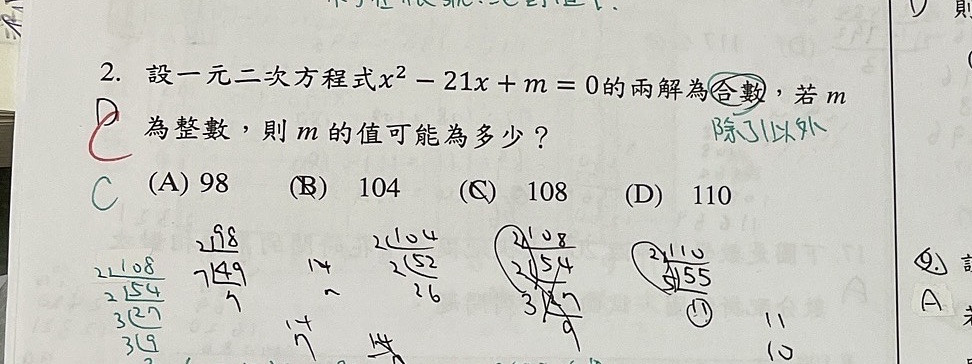 2. 設一元二次方程式x² − 21x + m = 0的兩解為合數，若 m
除了1以外
為整數，則 m 的值可能為多少？
C
C
(A) 98 (B) 104 (C) 108 (D) 110
2 98
7 49
7
14
7
2 104
2 52
26
2 108
2 54
3 27
9
2 110
5 55
11
11
10
2 108
2 54
3 27
3 9
A